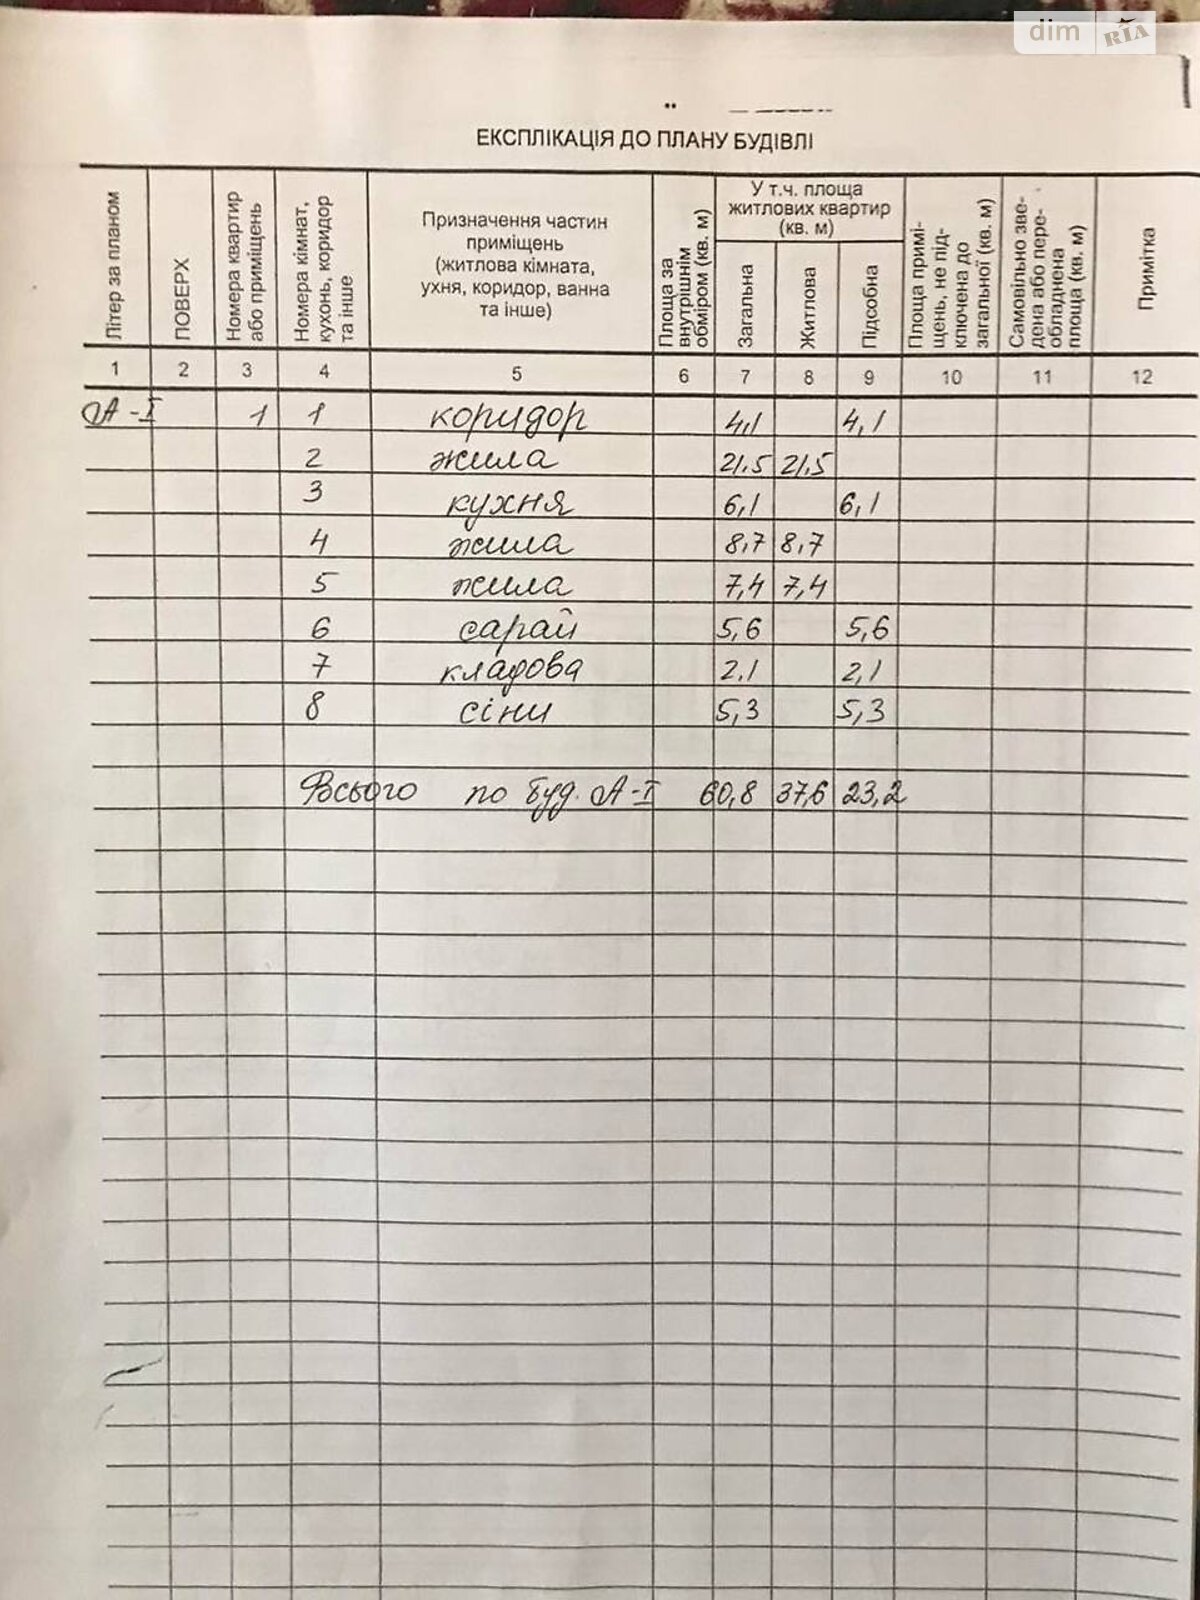 dim RIA
ЕКСПЛІКАЦІЯ ДО ПЛАНУ БУДІВЛІ
Літер за планом
ПОВЕРХ
Номера квартир або приміщень
Номера кімнат, кухонь, коридор та інше
Призначення частин
приміщень
(житлова кімната,
ухня, коридор, ванна
та інше)
Площа за внутрішнім обміром (кв. м)
У т.ч. площа
житлових квартир
(кв. м)
Загальна
Житлова
Підсобна
Площа примі-щень, не під-ключена до загальної (кв. м)
Самовільно зве-дена або пере-обладнена площа (кв. м)
Примітка
1 2 3 4 5 6 7 8 9 10 11 12
А-І 1 1 коридор 4,1 4,1
2 жила 21.5 21,5
3 кухня 6,1 6,1
4 жила 8,7 8,7
5 жила 7,4 7,4
6 сарай 5,6 5,6
7 кладова 2,1 2,1
8 сіни 5,3 5,3
Всього по буд. А-І 60,8 37,6 23,2